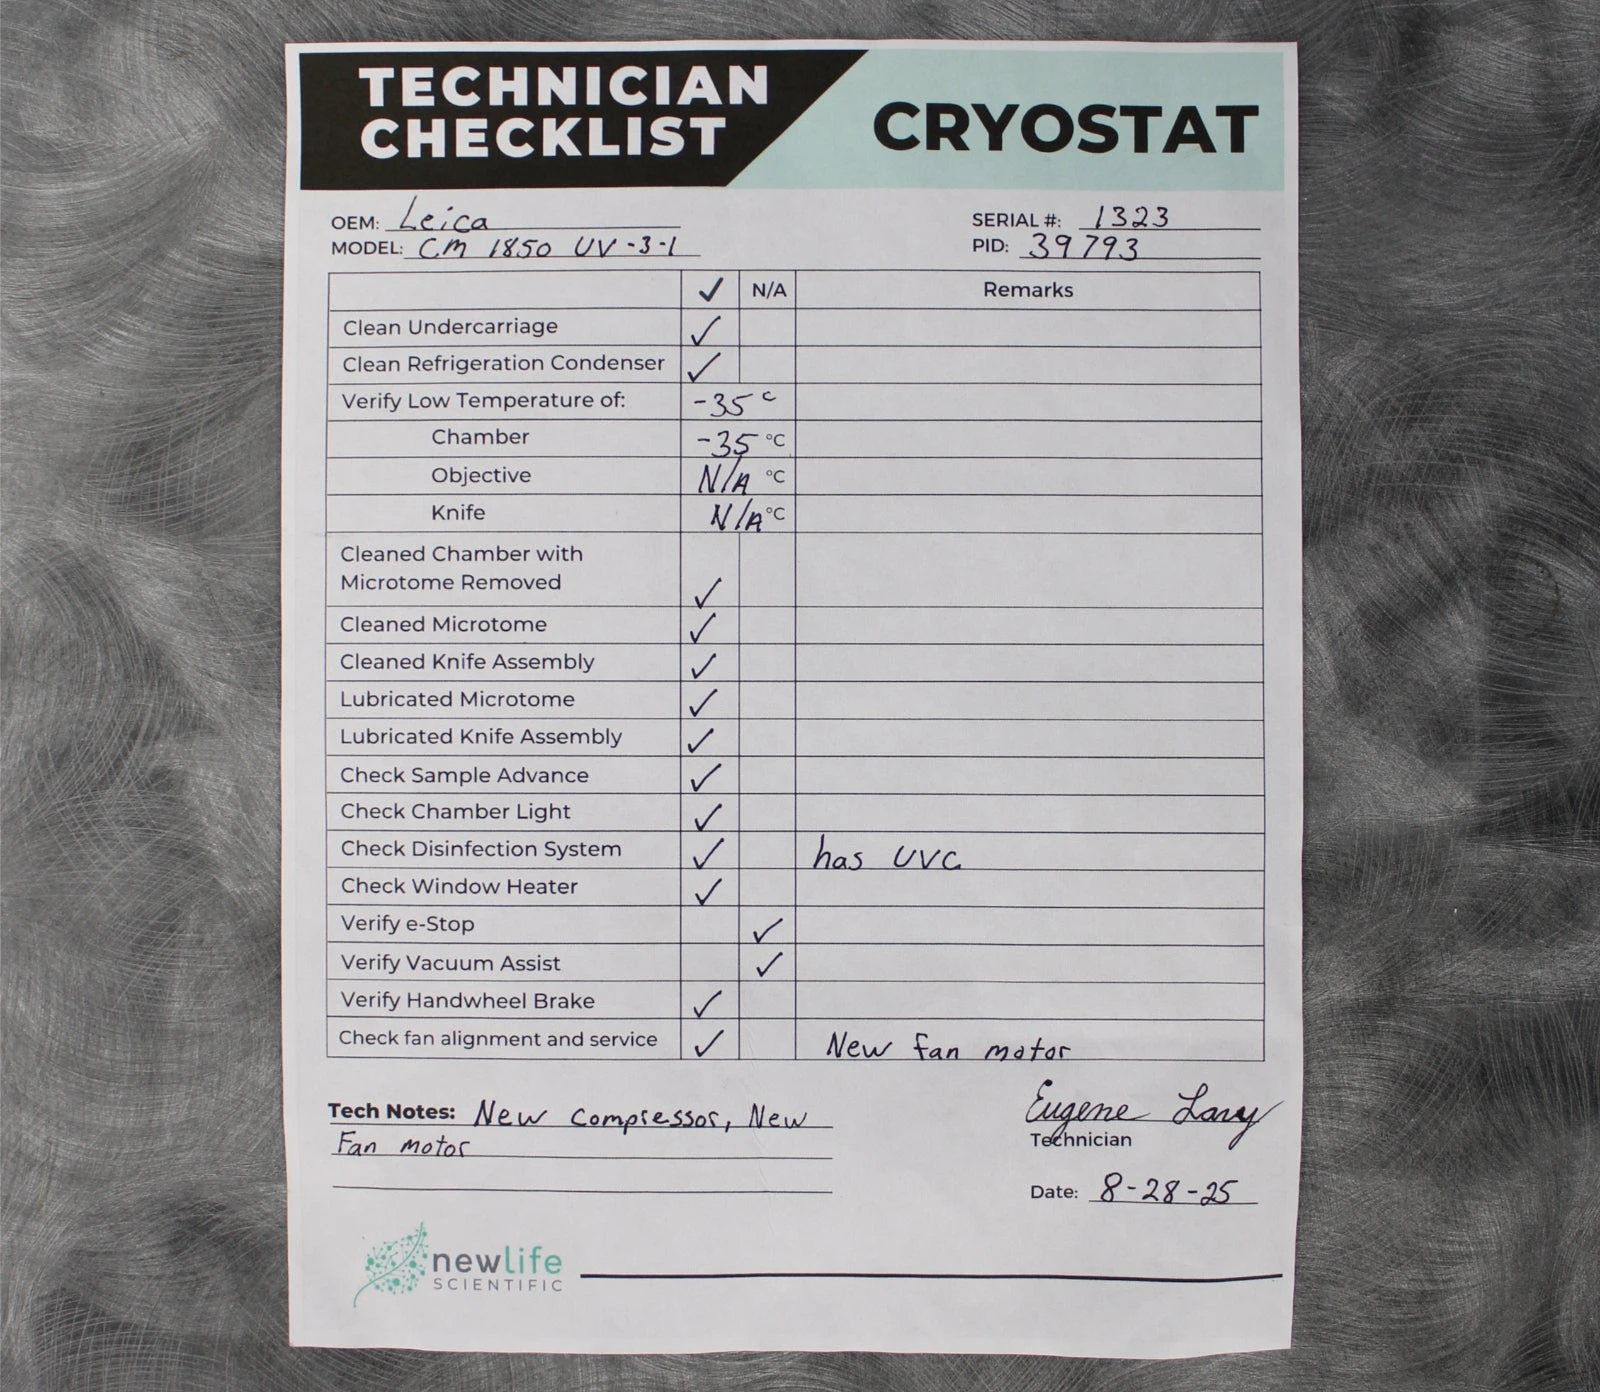 TECHNICIAN
CHECKLIST
CRYOSTAT
OEM: Leica
SERIAL #: 1323
MODEL: CM 1850 UV-3-1
PID: 39793
✓ N/A Remarks
Clean Undercarriage ✓
Clean Refrigeration Condenser ✓
Verify Low Temperature of: -35 c
Chamber -35 °C
Objective N/A °C
Knife N/A °C
Cleaned Chamber with
Microtome Removed ✓
Cleaned Microtome ✓
Cleaned Knife Assembly ✓
Lubricated Microtome ✓
Lubricated Knife Assembly ✓
Check Sample Advance ✓
Check Chamber Light ✓
Check Disinfection System ✓ has UVC
Check Window Heater ✓
Verify e-Stop ✓
Verify Vacuum Assist ✓
Verify Handwheel Brake ✓
Check fan alignment and service ✓ New fan motor
Tech Notes: New compressor, New
Fan motor
Eugene
Technician
Date: 8-28-25
newlife
SCIENTIFIC